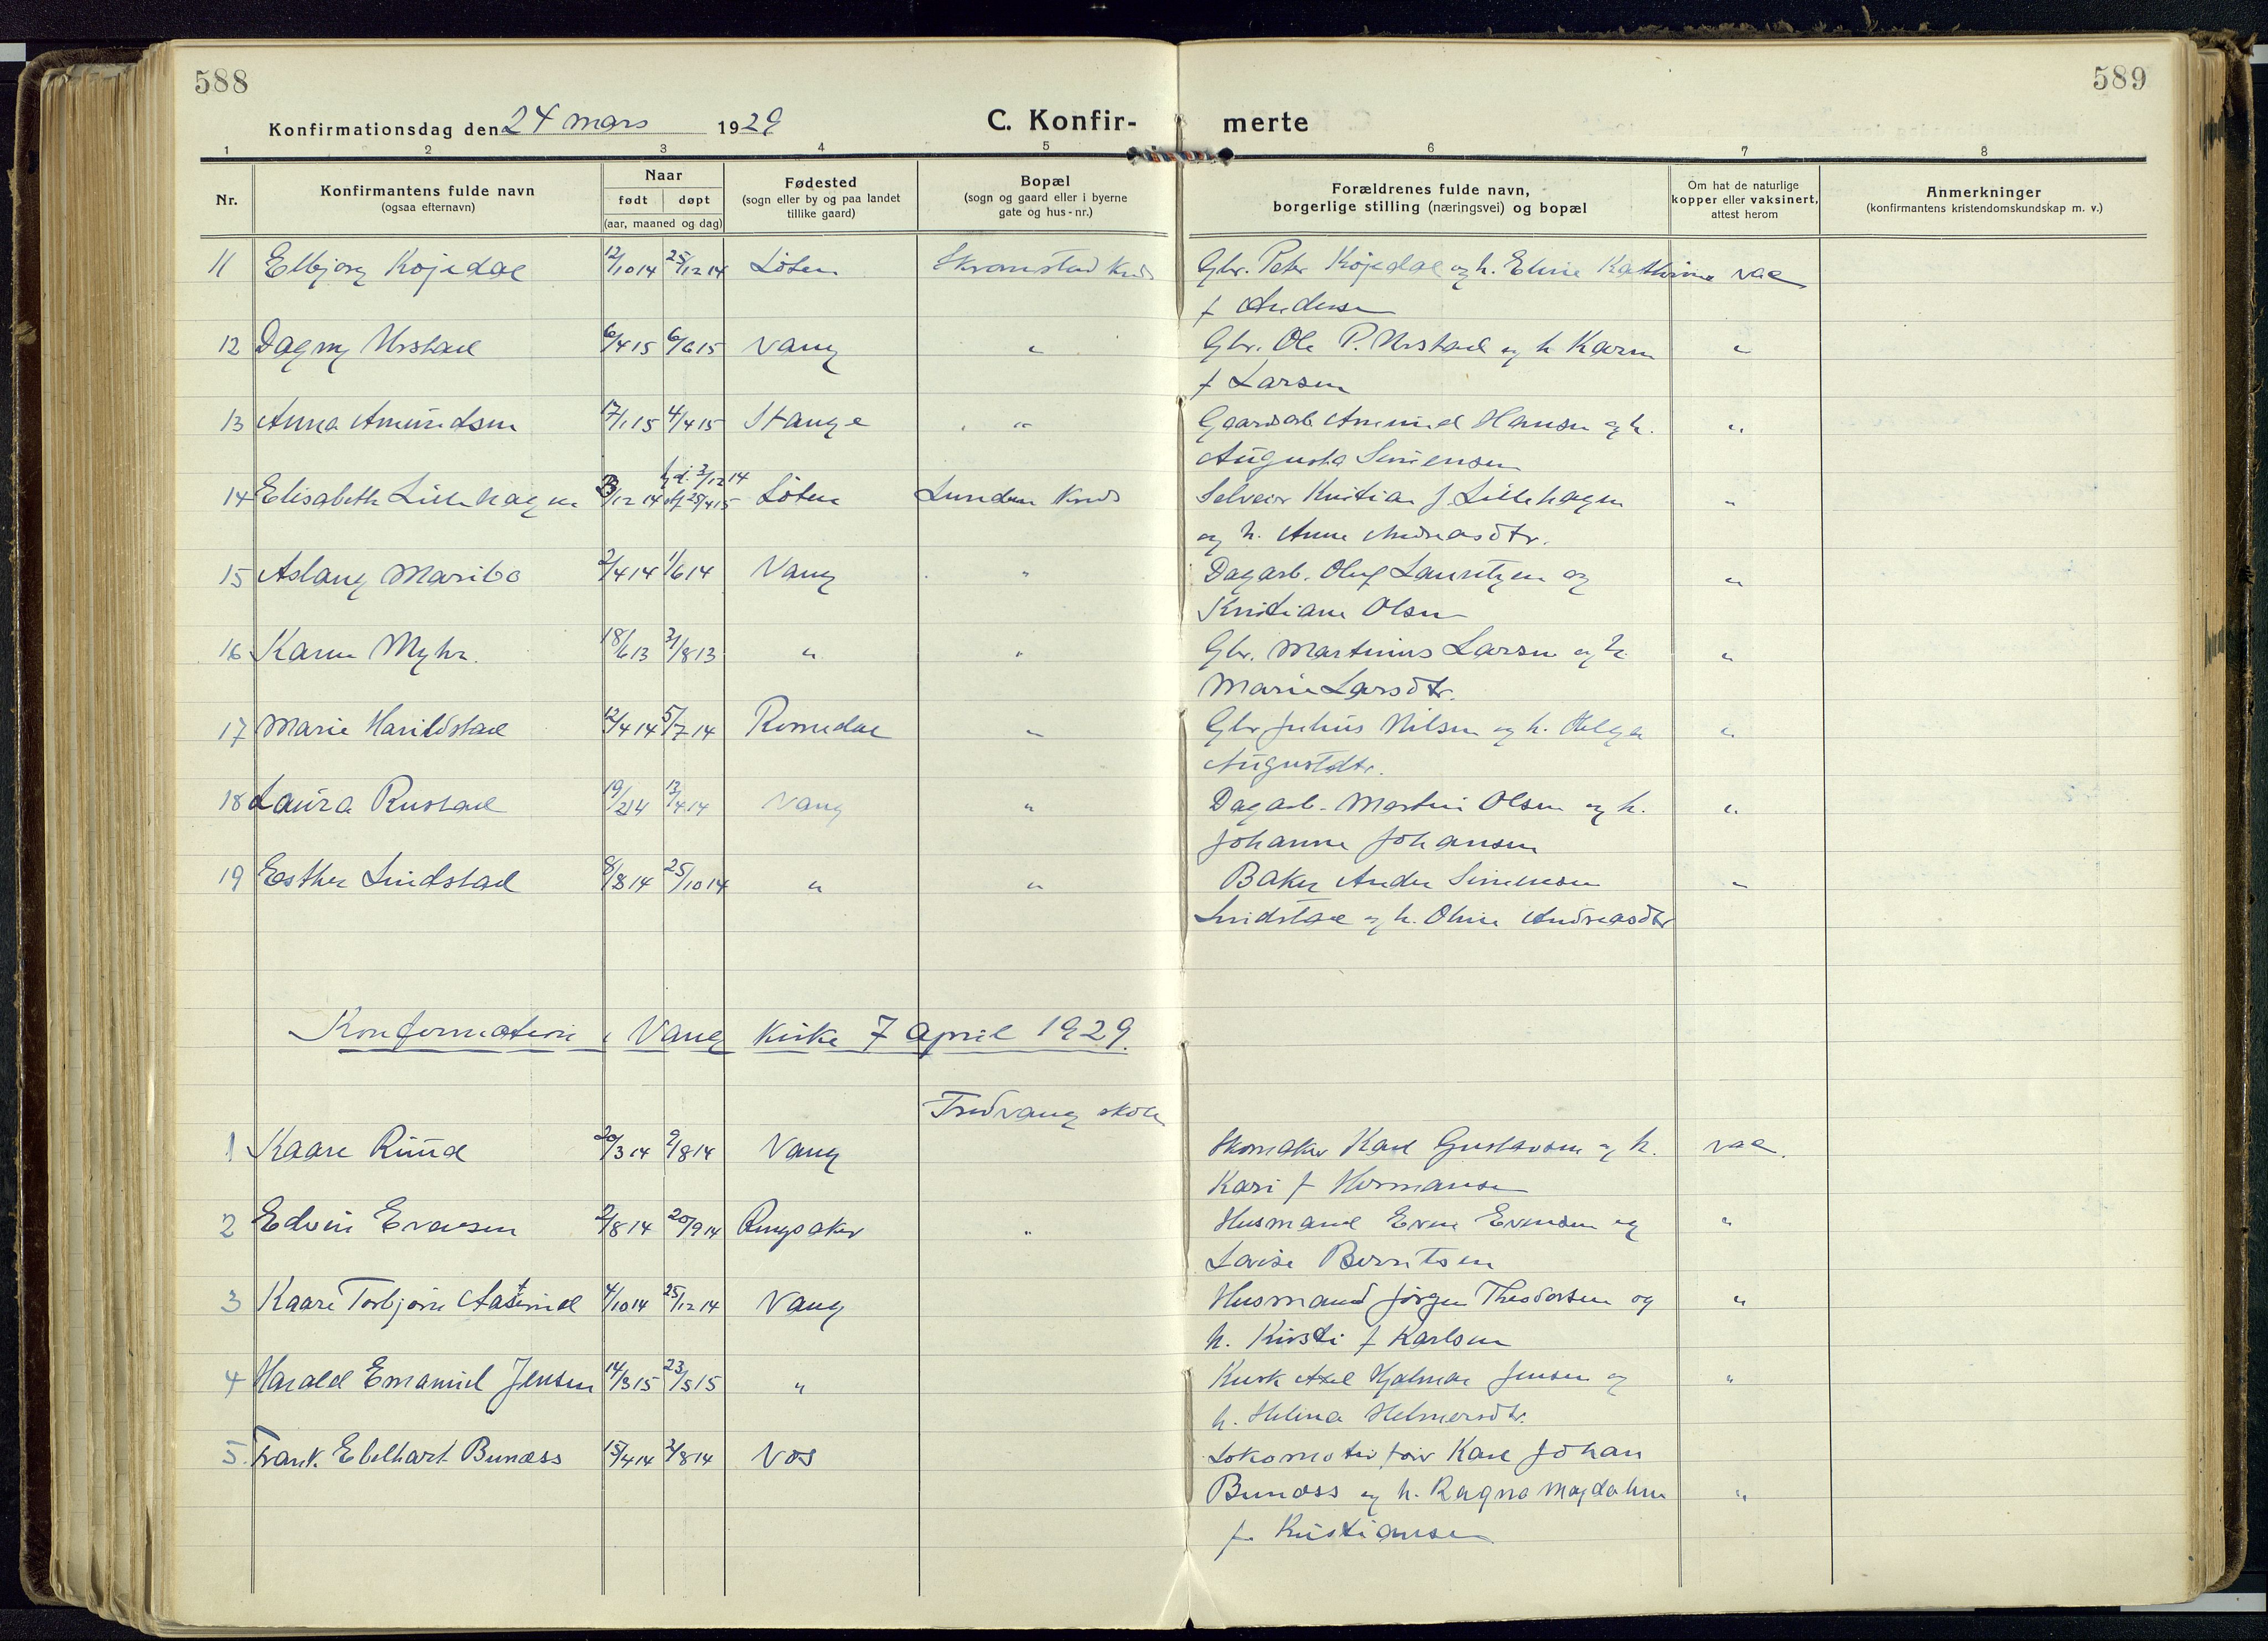 588
589
Konfirmationsdag den 24 mars 1929
C. Konfir-
merte
1 2 3 4 5 6 7 8
Nr.
Konfirmantens fulde navn
(ogsaa efternavn)
Naar
født døpt
(aar, maaned og dag)
Fødested
(sogn eller by og paa landet
tillike gaard)
Bopæl
(sogn og gaard eller i byerne
gate og hus-nr.)
Forældrenes fulde navn,
borgerlige stilling (næringsvei) og bopæl
Om hat de naturlige
kopper eller vaksinert,
attest herom
Anmerkninger
(konfirmantens kristendomskundskap m. v.)
11 Elbjørg Köjedal 12/10 14 25/12 14 Löten Skramstad Kreds Gbr. Peter Köjedal og h. Eline Kathrine vac
f Andersen
12 Dagny Urstad 6/4 15 6/6 15 Vang " Gbr. Ole P. Urstad og h Karen "
f Larsen
13 Anna Amundsen 17/1 15 4/4 15 Stange " Gaardsarb. Amund Hansen og h. "
Augusta Simensen
hjd. 3/12 14
14 Elisabeth Lillehagen 3/12 14 25/4 15 Löten Lunden Kreds Selveier Kristian J. Lillehagen "
og h. Anne Andreasdtr.
15 Aslaug Maribo 2/4 14 1/6 14 Vang " Dagarb. Oluf Lauritzen og "
Kristiane Olsen
16 Karen Myhr. 18/6 13 3/8 13 " " Gbr. Martinius Larsen og h. "
Marie Larsdtr.
17 Marie Harildstad 12/4 14 5/7 14 Romedal " Gbr Julius Nilsen og h. Helga "
Augustdtr.
18 Laura Rustad 19/2 14 13/4 14 Vang " Dagarb. Martin Olsen og h. "
Johanne Johansen
19 Esther Lindstad 8/8 14 25/10 14 " " Baker Anders Simensen "
Lindstad og h. Oline Andreasdtr
Konfirmation i Vang Kirke 7 april 1929.
Fredvang skole
1 Kaare Ruud 20/3 14 9/8 14 Vang Skomaker Karl Gustavsen og h. vac.
Kari f Hermansen
2 Edvin Evensen 2/8 14 20/9 14 Ringsaker " Husmand Even Evensen og "
Lovise Berntsen
3 Kaare Torbjørn Aastrud 4/10 14 25/12 14 Vang Husmand Jørgen Theodorsen og "
h. Kirsti f Karlsen
4 Harald Emanuel Jensen 14/3 15 23/5 15 " Kusk Axel Hjalmar Jensen og "
h. Helina Helmersdtr.
5. Frank Ebelhart Bunæss 15/4 14 2/8 14 Vos Lokomotivfører Karl Johan
Bunæss og h. Ragna Magdalene "
f. Kristiansen